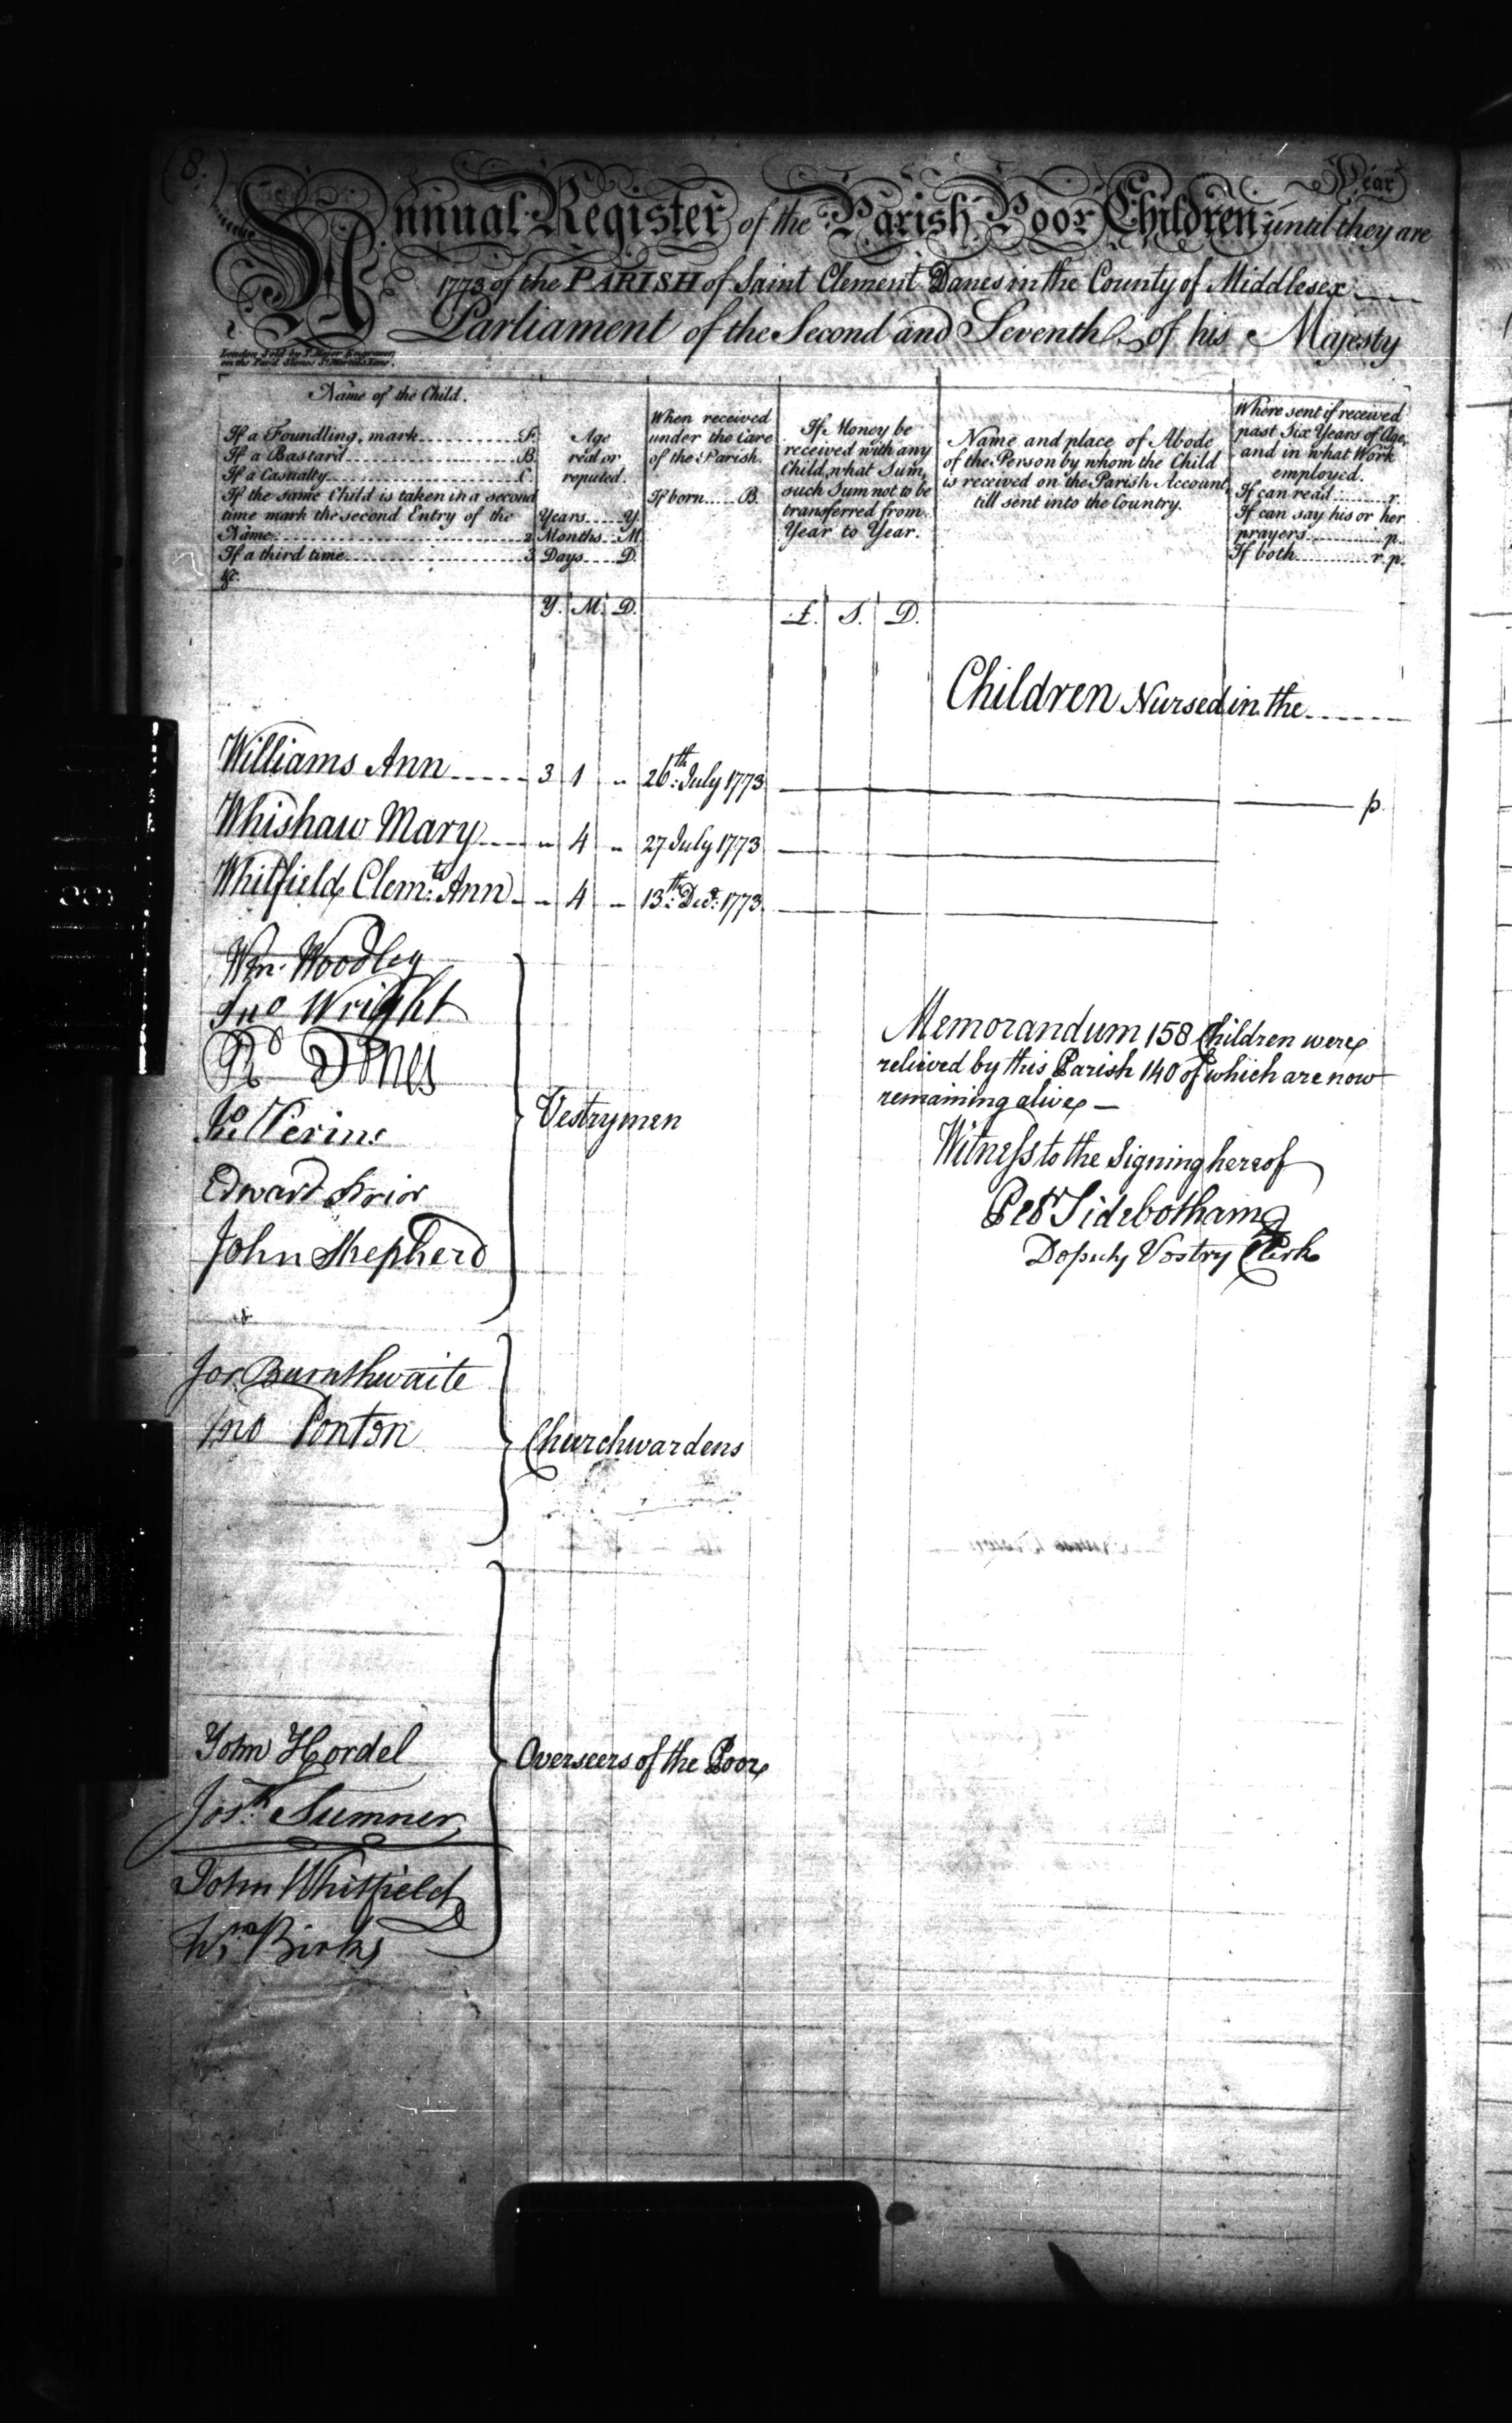 (8.)
Year
Annual Register of the Parish Poor Children until they are
1773 of the PARISH of Saint Clement Danes in the County of Middlesex
Parliament of the Second and Seventh of his Majesty
London Sold by
Name of the Child.
If a Foundling, mark F.
If a Bastard B.
If a Casualty C.
If the same Child is taken in a second
time mark the second Entry of the
Name 2
If a third time 3
&c.
Age
real or
reputed.
Years Y.
Months M.
Days D.
When received
under the Care
of the Parish.
If born B.
If Money be
received with any
Child, what Sum,
such Sum not to be
transferred from
Year to Year.
Name and place of Abode
of the Person by whom the Child
is received on the Parish Account
till sent into the Country.
Where sent if received
past Six Years of Age,
and in what Work
employed.
If can read r.
If can say his or her
prayers p.
If both r. p.
Y. M. D.
£. S. D.
Children Nursed in the
Williams Ann 3 1 " 26th July 1773 p.
Whishaw Mary " 4 " 27 July 1773
Whitfield Clemts Ann " 4 " 13th Decr 1773
Wm. Woodley
Jno Wright
Rd Jones
Perins
Edward Prior
John Shepherd
Vestrymen
Memorandum 158 Children were
relieved by this Parish 140 of which are now
remaining alive
Witness to the Signing hereof
Petr Sidebotham
Deputy Vestry Clerk
Jos. Burnthwaite
Jno Ponton
Churchwardens
John Hordel
Josh Sumner
John Whitfield
Wm Birks
Overseers of the Poor